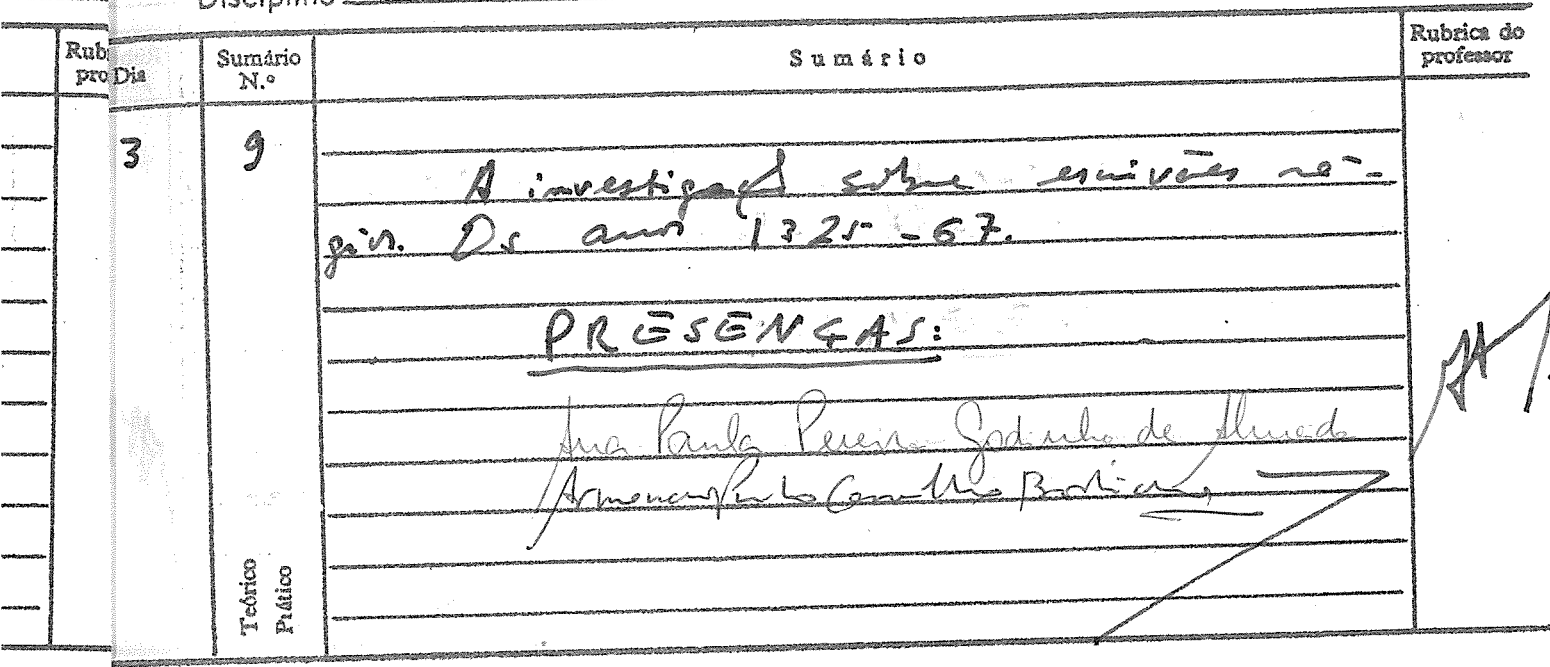 Disciplino
Rub
pro
Dia
Sumário
N.º
Sumário
Rubrica do
professor
3
9
A investigação sobre escrivães ré-
gios. Os anos 1325-67.
PRESENÇAS:
Ana Paula Pereira Godinho de Almeida
Carvalho
Teórico
Prático